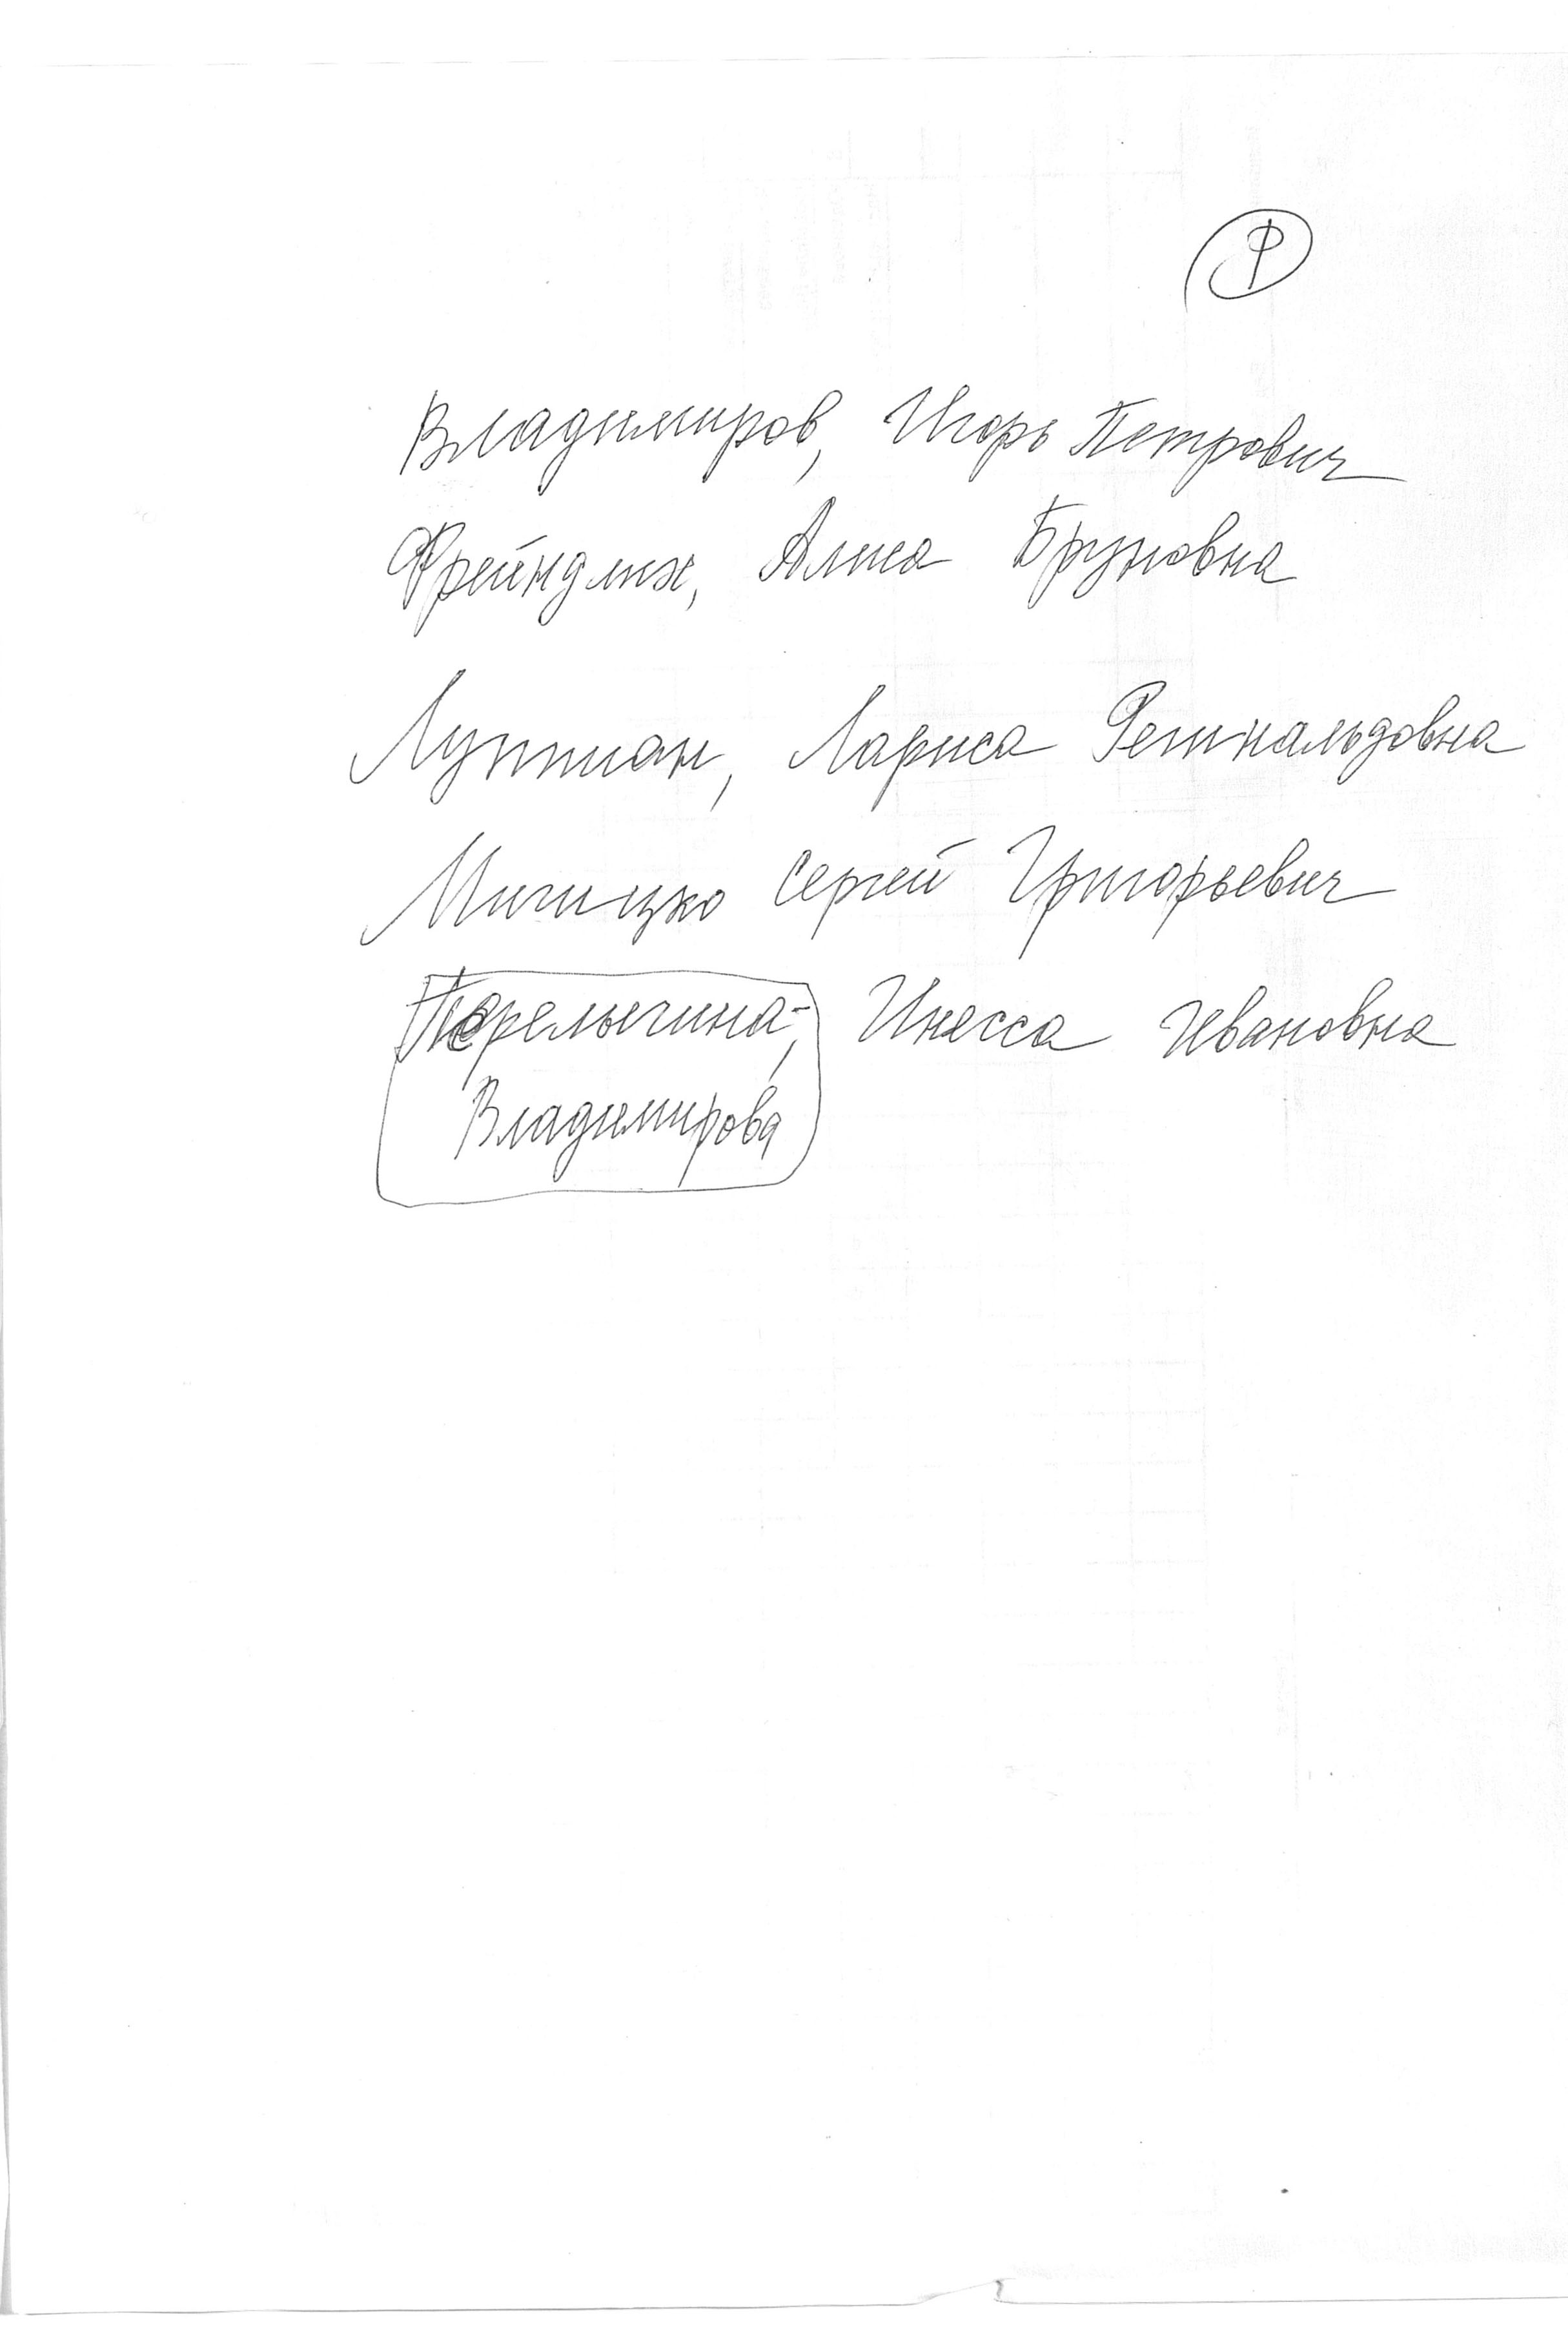 Ф
Владимиров, Игорь Петрович
Фрейндлих, Алиса Бруновна
Луппиан, Лариса Регинальдовна
Мигицко Сергей Григорьевич
Перелыгина-, Инесса Ивановна
Владимирова